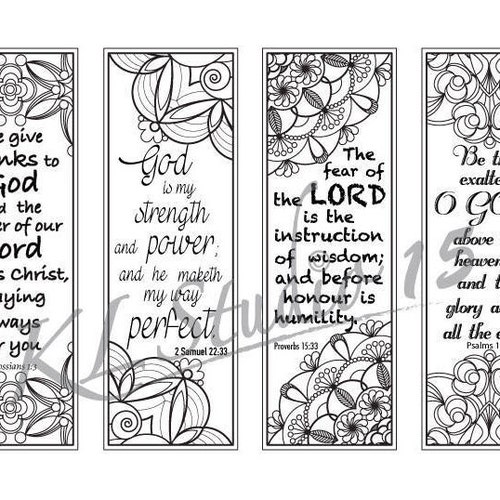 e give
nks to
God
d the
er of our
Lord
s Christ,
aying
ways
r you
ossians 1:3
God
is my
strength
and power;
and he maketh
my way
perfect.
2 Samuel 22:33
The
fear of
the LORD
is the
instruction
of wisdom;
and before
honour is
humility.
Proverbs 15:33
Be th
exalte
O GO
above
heaven
and t
glory a
all the e
Psalms 1
KL Studio 15